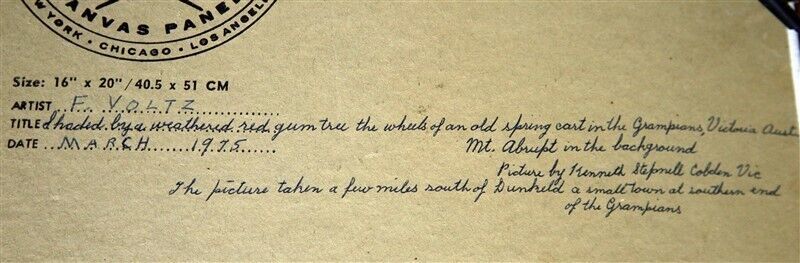 CANVAS PANEL
NEW YORK · CHICAGO · LOS ANGELES
Size: 16" x 20"/40.5 x 51 CM
ARTIST F. VOLTZ
TITLE Shaded by a weathered red gum tree the wheels of an old spring cart in the Grampians, Victoria Aust
DATE MARCH 1975 Mt. Abrupt in the background
Picture by Kenneth Stepnell Cobden Vic
The picture taken a few miles south of Dunkeld a small town at southern end
of the Grampians